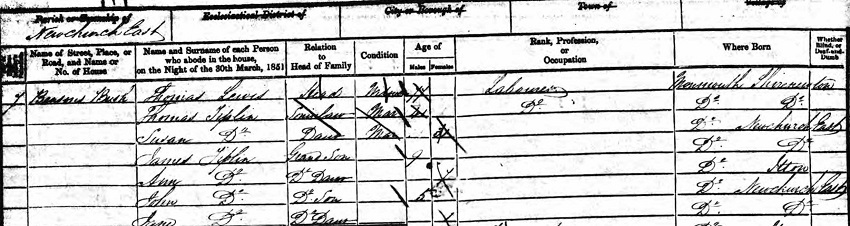 Parish or Township of
Ecclesiastical District of
City or Borough of
Town of
Newchurch East
Name of Street, Place, or Road, and Name or No. of House
Name and Surname of each Person who abode in the house, on the Night of the 30th March, 1851
Relation to Head of Family
Condition
Age of
Males
Females
Rank, Profession, or Occupation
Where Born
Whether Blind, or Deaf-and-Dumb
7 Thomas Lewis Head Labourer Monmouth Shirenewton
Thomas Tiplin Mar Do Do Do
Susan Do Daur Mar Do Newchurch East
James Tiplin Grand Son 9 Do Do
Ann Do Do Daur Do Itton
John Do Do Son 5 Do Newchurch East
Jane Do Do Daur Do Do